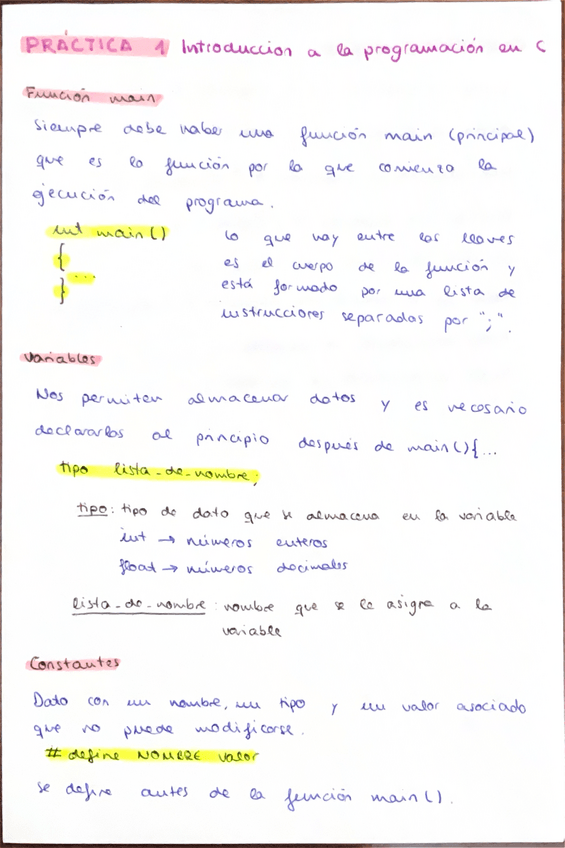 PRÁCTICA 1 Introduccion a la programación en C
Función main
Siempre debe haber una función main (principal)
que es la función por la que comienza la
ejecución del programa.
int main()
{
...
}
lo que hay entre las llaves
es el cuerpo de la función y
está formado por una lista de
instrucciones separadas por ";".
Variables
Nos permiten almacenar datos y es necesario
declararlas al principio después de main(){...
tipo lista_de_nombre;
tipo: tipo de dato que se almacena en la variable
int → números enteros
float → números decimales
lista_de_nombre: nombre que se le asigna a la
variable
Constantes
Dato con un nombre, un tipo y un valor asociado
que no puede modificarse.
# define NOMBRE valor
se define antes de la función main().